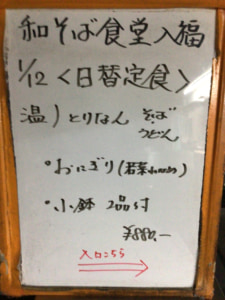 和そば食堂入福
1/12 <日替定食>
温) とりなん そば
うどん
・おにぎり(若菜わかめ)
・小鉢 2品付
¥880.-
入口こちら